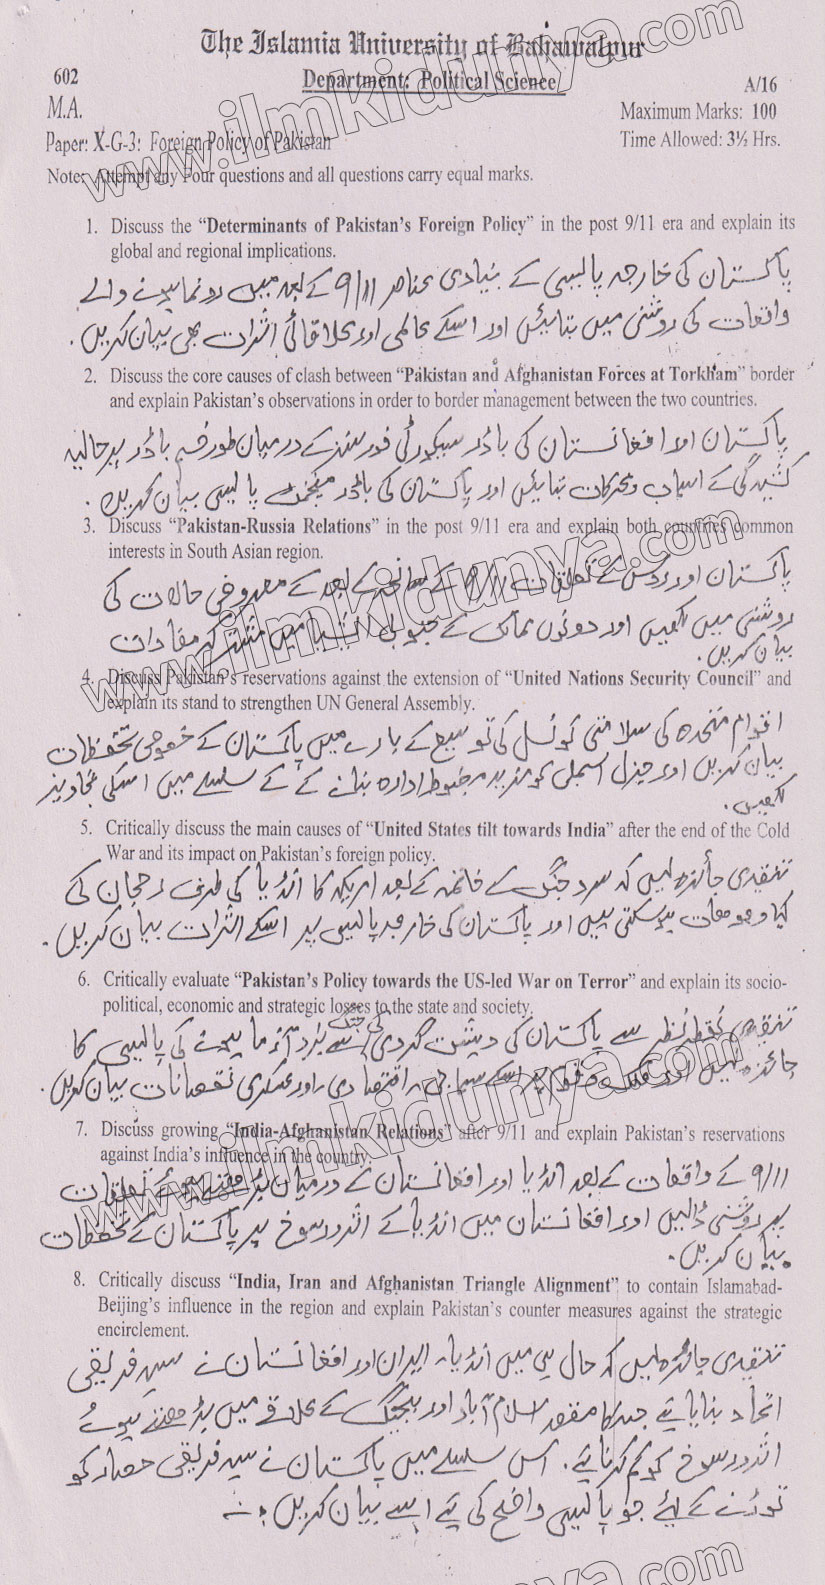 The Islamia University of Bahawalpur
602 Department: Political Science A/16
M.A. Maximum Marks: 100
Paper: X-G-3: Foreign Policy of Pakistan Time Allowed: 3½ Hrs.
Note: Attempt any Four questions and all questions carry equal marks.
1. Discuss the “Determinants of Pakistan's Foreign Policy” in the post 9/11 era and explain its
global and regional implications.
پاکستان کی خارجہ پالیسی کے بنیادی عناصر 9/11 کے بعد میں رونما ہونے والے
واقعات کی روشنی میں بتائیں اور اسکے عالمی اور علاقائی اثرات بھی بیان کریں۔
2. Discuss the core causes of clash between “Pakistan and Afghanistan Forces at Torkham” border
and explain Pakistan's observations in order to border management between the two countries.
پاکستان اور افغانستان کی باڈر سیکورٹی فورسز کے درمیان طورخم باڈر پر حالیہ
کشیدگی کے اسباب و محرکات بتائیں اور پاکستان کی باڈر مینجمنٹ پالیسی بیان کریں۔
3. Discuss “Pakistan-Russia Relations” in the post 9/11 era and explain both countries common
interests in South Asian region.
پاکستان اور روس کے تعلقات 9/11 کے سانحہ کے بعد کے معروضی حالات کی
روشنی میں لکھیں اور دونوں ممالک کے جنوبی ایشیا میں مشترکہ مفادات
بیان کریں۔
4. Discuss Pakistan's reservations against the extension of “United Nations Security Council” and
explain its stand to strengthen UN General Assembly.
اقوام متحدہ کی سلامتی کونسل کی توسیع کے بارے میں پاکستان کے خصوصی تحفظات
بیان کریں اور جنرل اسمبلی کو مزید مضبوط ادارہ بنانے کے کے سلسلے میں اسکی تجاویز
لکھیں۔
5. Critically discuss the main causes of “United States tilt towards India” after the end of the Cold
War and its impact on Pakistan's foreign policy.
تنقیدی جائزہ لیں کہ سرد جنگ کے خاتمہ کے بعد امریکہ کا انڈیا کی طرف رحجان کی
کیا وجوہات ہوسکتی ہیں اور پاکستان کی خارجہ پالیسی پر اسکے اثرات بیان کریں۔
6. Critically evaluate “Pakistan's Policy towards the US-led War on Terror” and explain its socio-
political, economic and strategic losses to the state and society.
تنقیدی نقطہ نظر سے پاکستان کی دہشت گردی کی جنگ سے نبرد آزما ہونے کی پالیسی کا
جائزہ لیں اور ملک و قوم پر اسکے سماجی، اقتصادی، اور عسکری نقصانات بیان کریں۔
7. Discuss growing “India-Afghanistan Relations” after 9/11 and explain Pakistan's reservations
against India's influence in the country.
9/11 کے واقعات کے بعد انڈیا اور افغانستان کے درمیان بڑھتے ہوئے تعلقات
پر روشنی ڈالیں اور افغانستان میں انڈیا کے اثرورسوخ پر پاکستان کے تحفظات
بیان کریں۔
8. Critically discuss “India, Iran and Afghanistan Triangle Alignment” to contain Islamabad-
Beijing's influence in the region and explain Pakistan's counter measures against the strategic
encirclement.
تنقیدی جائزہ لیں کہ حال ہی میں انڈیا، ایران اور افغانستان نے سہ فریقی
اتحاد بنایا ہے جسکا مقصد اسلام آباد اور بیجنگ کے علاقے میں بڑھتے ہوئے
اثرورسوخ کو کم کرنا ہے۔ اس سلسلے میں پاکستان نے سہ فریقی حصار کو
توڑنے کے لیئے جو پالیسی واضح کی ہے اسے بیان کریں؟
www.ilmkidunya.com
www.ilmkidunya.com
www.ilmkidunya.com